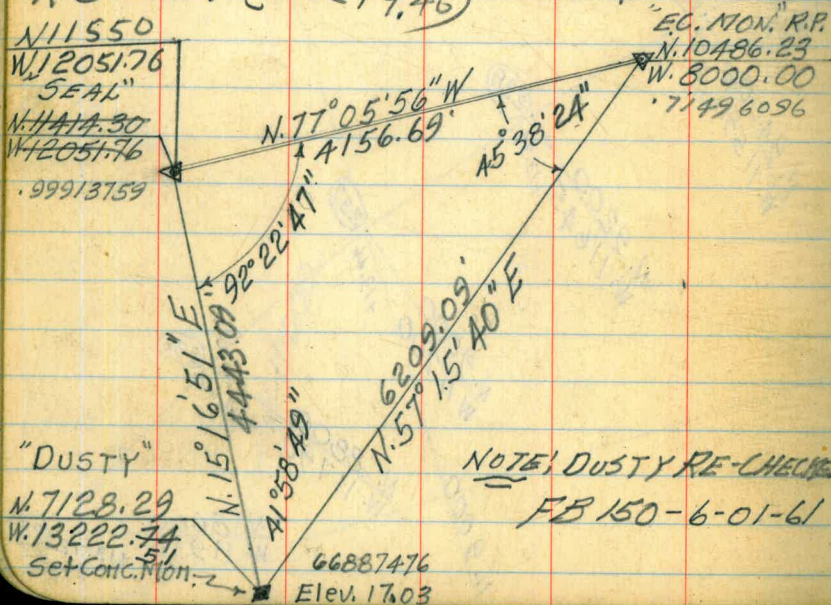 N 11550
W. 12051.76
"SEAL"
N. 11414.30
W 12051.76
.99913759
"E.C. MON." R.P.
N. 10486.23
W. 8000.00
.71496096
N. 77° 05' 56" W
4156.69'
45° 38' 24"
92° 22' 47"
N. 15° 16' 51" E
4443.09'
41° 58' 49"
6209.09'
N. 57° 15' 40" E
"DUSTY"
N. 7128.29
W. 13222.74
51
Set Conc. Mon.
66887476
Elev. 17.03
NOTE! DUSTY RE-CHECKE
FB 150-6-01-61